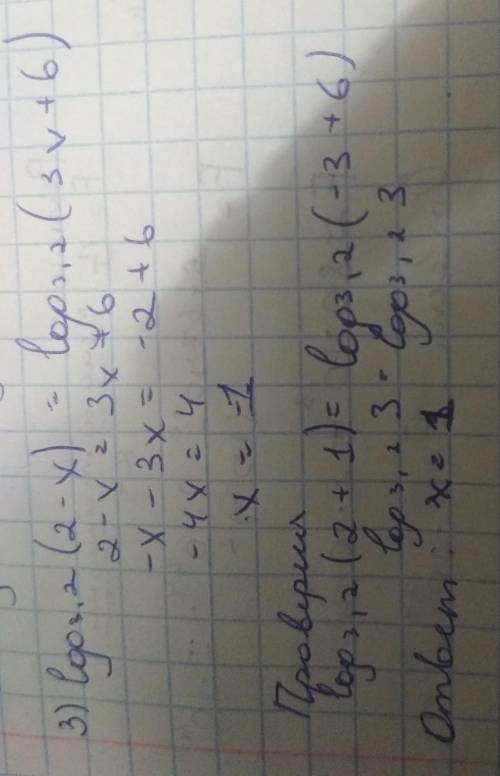 3) log₃,₂(2-x) = log₃,₂(3x+6)
2-x = 3x+6
-x-3x = -2+6
-4x = 4
x = -1
Проверим
log₃,₂(2+1) = log₃,₂(-3+6)
log₃,₂ 3 = log₃,₂ 3
Ответ: x = 1